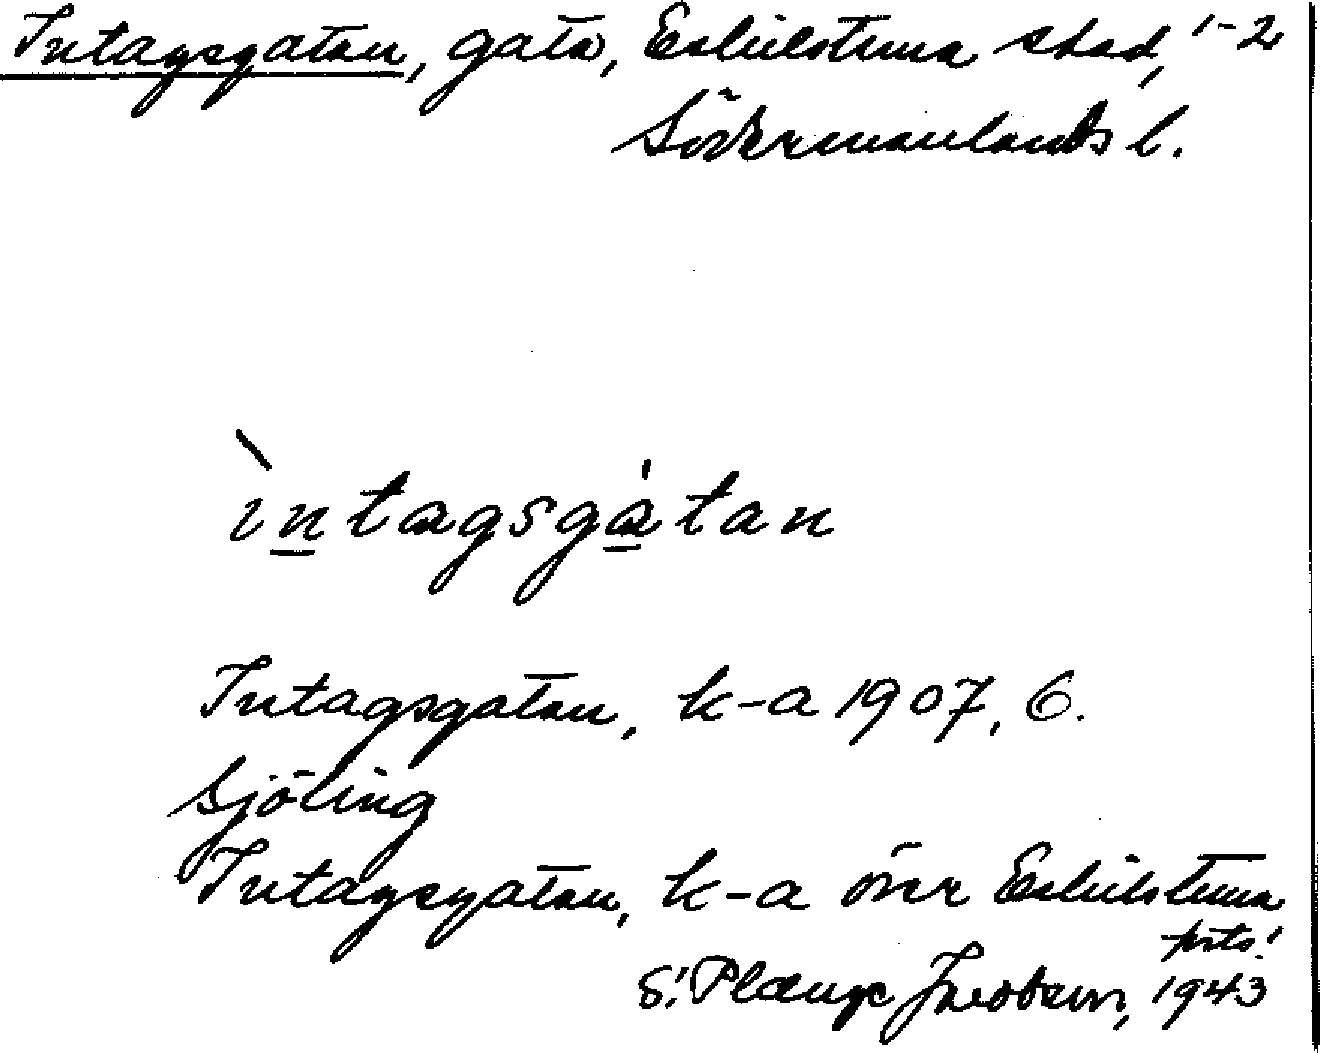 Intagsgatan, gata, Eskilstuna stad, 1-2
Södermanlands l.
ìntagsgàtan
Intagsgatan, k-a 1907, 6.
Sjöling
Intagsgatan, k-a över Eskilstuna
S. Plænge Jacobson, 1943